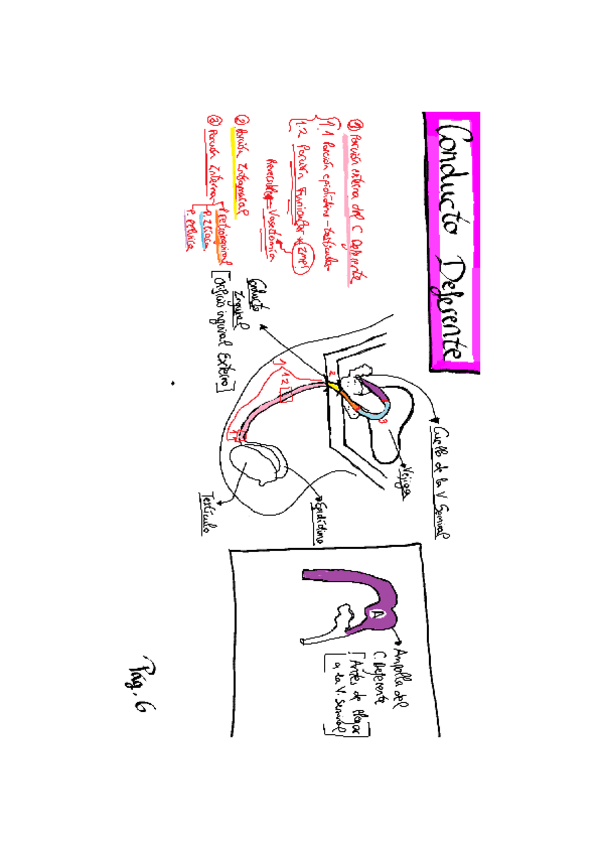 Conducto Deferente
① Porción externa del C Deferente
1.1 Porción epididimo-testicular
1.2 Porción Funicular → Imp!
Vasectomía
② Porción Intrainguinal
③ Porción Interna
P. Iliaca
P. Pélvica
Conducto
Inguinal
[Orificio inguinal Externo]
1
1.2
1.1
2
3
Cuello de la V. Seminal
Vejiga
Epidídimo
Testículo
A
Ampolla del
C. Deferente
[Antes de llegar
a la V. Seminal]
Pág. 6